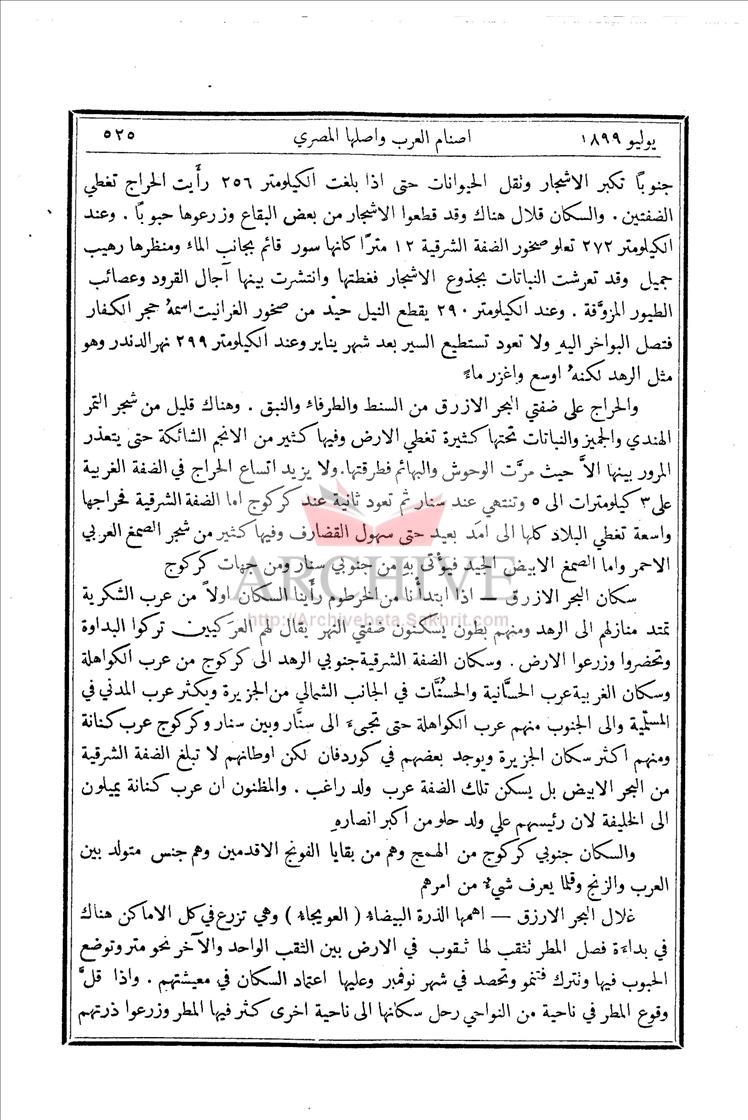 يوليو ١٨٩٩ اصنام العرب واصلها المصري ٥٢٥
جنوبًا تكبر الاشجار وتقل الحيوانات حتى اذا بلغت الكيلومتر ٢٥٦ رأيت الحراج تغطي
الضفتين . والسكان قلال هناك وقد قطعوا الاشجار من بعض البقاع وزرعوها حبوبًا . وعند
الكيلومتر ٢٧٢ تعلو صخور الضفة الشرقية ١٢ مترًا كانها سور قائم بجانب الماء ومنظرها رهيب
جميل وقد تعرشت النباتات بجذوع الاشجار فغطتها وانتشرت بينها آجال القرود وعصائب
الطيور المزوَّقة . وعند الكيلومتر ٢٩٠ يقطع النيل حيْد من صخور الغرانيت اسمهُ حجر الكفار
فتصل البواخر اليهِ ولا تعود تستطيع السير بعد شهر يناير وعند الكيلومتر ٢٩٩ نهر الدندر وهو
مثل الرهد لكنهُ اوسع واغزر ماءً
والحراج على ضفتي البحر الازرق من السنط والطرفاء والنبق . وهناك قليل من شجر التمر
الهندي والجميز والنباتات تحتها كثيرة تغطي الارض وفيها كثير من الانجم الشائكة حتى يتعذر
المرور بينها الاَّ حيث مرَّت الوحوش والبهائم فطرقتها. ولا يزيد اتساع الحراج في الضفة الغربية
على ٣ كيلومترات الى ٥ وتنتهي عند سنار ثم تعود ثانية عند كركوج اما الضفة الشرقية فحراجها
واسعة تغطي البلاد كلها الى امد بعيد حتى سهول القضارف وفيها كثير من شجر الصمغ العربي
الاحمر واما الصمغ الابيض الجيد فيؤتى بهِ من جنوبي سنار ومن جهات كركوج
ARCHIVE
سكان البحر الازرق — اذا ابتدأنا من الخرطوم رأينا السكان اولاً من عرب الشكرية
http://Archivebeta.Sakhrit.com
تمتد منازلهم الى الرهد ومنهم بطون يسكنون ضفتي النهر يقال لهم العركيين تركوا البداوة
وتحضروا وزرعوا الارض . وسكان الضفة الشرقية جنوبي الرهد الى كركوج من عرب الكواهلة
وسكان الغربية عرب الحسَّانية والحسُنَّات في الجانب الشمالي من الجزيرة ويكثر عرب المدني في
المسلّمية والى الجنوب منهم عرب الكواهلة حتى تجيء الى سنَّار وبين سنار وكركوج عرب كنانة
ومنهم اكثر سكان الجزيرة ويوجد بعضهم في كوردفان لكن اوطانهم لا تبلغ الضفة الشرقية
من البحر الابيض بل يسكن تلك الضفة عرب ولد راغب . والمظنون ان عرب كنانة يميلون
الى الخليفة لان رئيسهم علي ولد حلو من اكبر انصارهِ
والسكان جنوبي كركوج من الهمج وهم من بقايا الفونج الاقدمين وهم جنس متولد بين
العرب والزنج وقلما يعرف شيء من امرهم
غلال البحر الازرق — اهمها الذرة البيضاء ( العويجاء ) وهي تزرع في كل الاماكن هناك
في بداءة فصل المطر تثقب لها ثقوب في الارض بين الثقب الواحد والآخر نحو متر وتوضع
الحبوب فيها وتترك فتنمو وتحصد في شهر نوفمبر وعليها اعتماد السكان في معيشتهم . واذا قلَّ
وقوع المطر في ناحية من النواحي رحل سكانها الى ناحية اخرى كثر فيها المطر وزرعوا ذرتهم